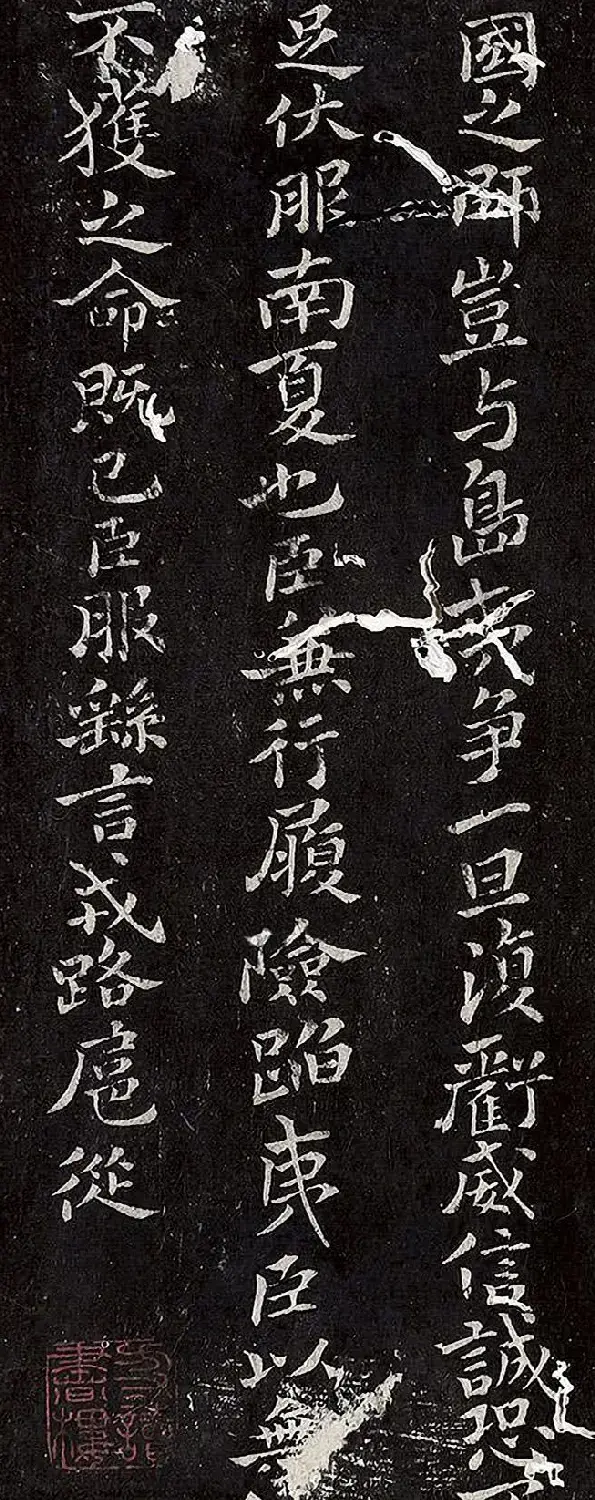 國之師豈与島夷争一旦虧威信誠恐
足伏服南夏也臣無行履險蹈夷臣以無
不獲之命既已臣服繇言戎路扈從